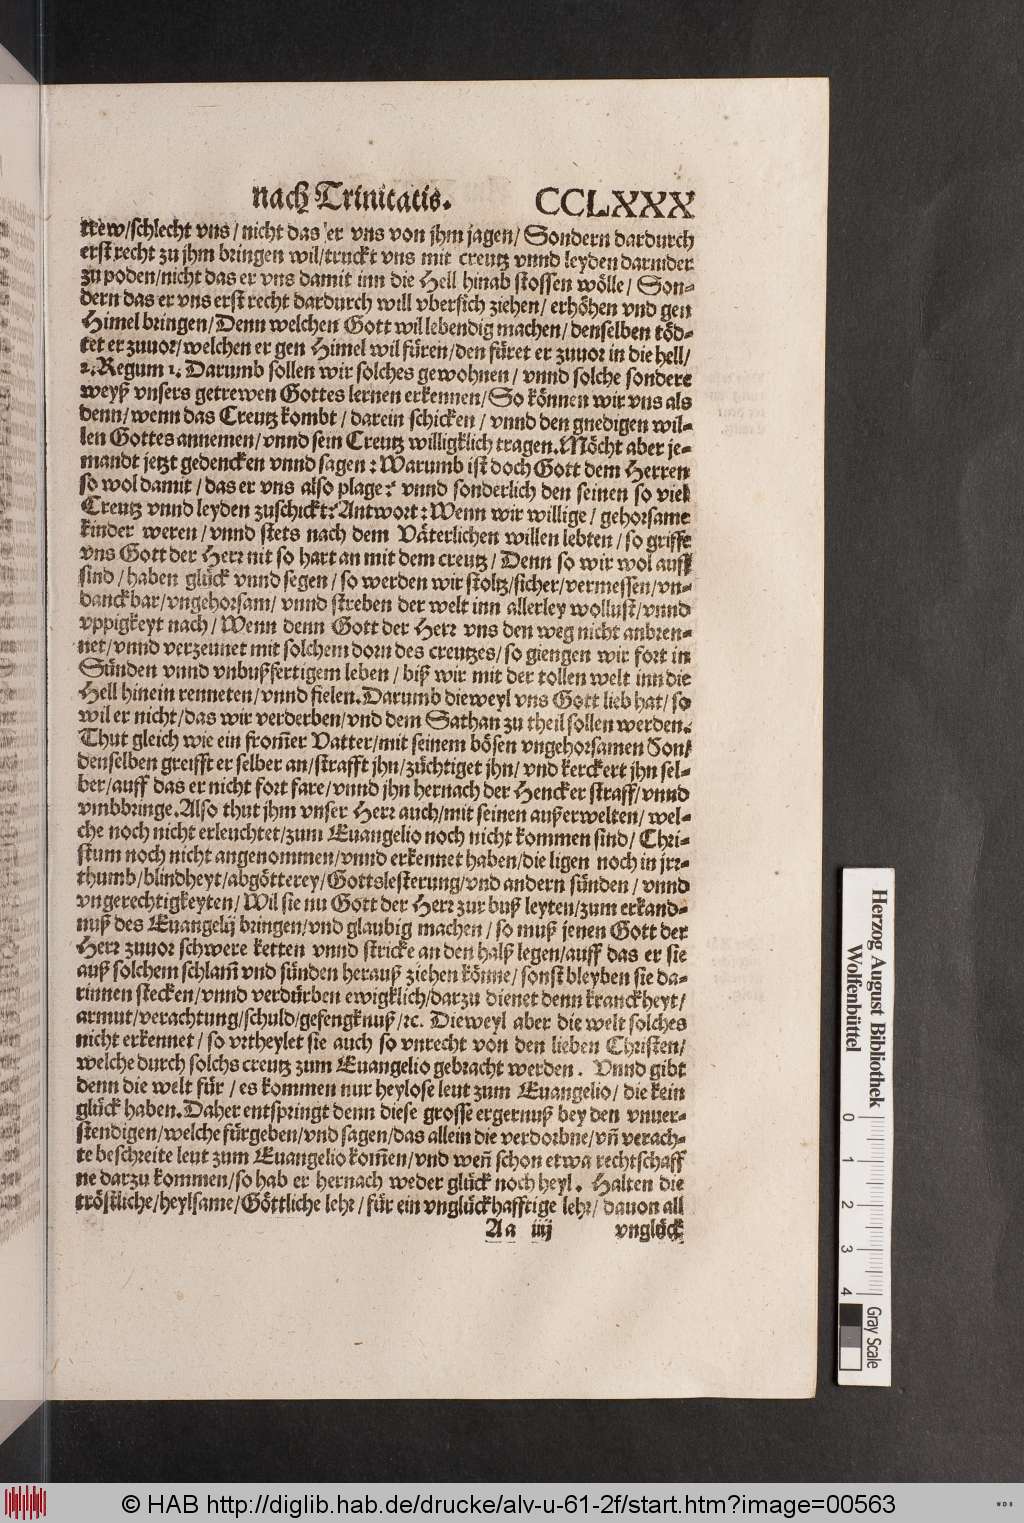 nach Trinitatis. CCLXXX
trew/schlecht vns/nicht das er vns von jhm jagen/Sondern dardurch
erst recht zu jhm bringen wil/truckt vns mit creutz vnnd leyden darnider
zu poden/nicht das er vns damit inn die Hell hinab stossen wölle/Son-
dern das er vns erst recht dardurch will vbersich ziehen/erhöhen vnd gen
Himel bringen/Denn welchen Gott wil lebendig machen/denselben töd-
tet er zuuor/welchen er gen Himel wil füren/den füret er zuuor in die hell/
2. Regum 1. Darumb sollen wir solches gewohnen/vnnd solche sondere
weyß vnsers getrewen Gottes lernen erkennen/So können wir vns als
denn/wenn das Creutz kombt/darein schicken/vnnd den gnedigen wil-
len Gottes annemen/vnnd sein Creutz willigklich tragen. Möcht aber je-
mandt jetzt gedencken vnnd sagen: Warumb ist doch Gott dem Herren
so wol damit/das er vns also plage? vnnd sonderlich den seinen so viel
Creutz vnnd leyden zuschickt? Antwort: Wenn wir willige/gehorsame
kinder weren/vnnd stets nach dem Väterlichen willen lebten/so griffe
vns Gott der Herr nit so hart an mit dem creutz/Denn so wir wol auff
sind/haben glück vnnd segen/so werden wir stoltz/sicher/vermessen/vn-
danckbar/vngehorsam/vnnd streben der welt inn allerley wollust/vnnd
vppigkeyt nach/Wenn denn Gott der Herr vns den weg nicht anbren-
net/vnnd verzeunet mit solchem dorn des creutzes/so giengen wir fort in
Sünden vnnd vnbußfertigem leben/biß wir mit der tollen welt inn die
Hell hinein renneten/vnnd fielen. Darumb dieweyl vns Gott lieb hat/so
wil er nicht/das wir verderben/vnd dem Sathan zu theil sollen werden.
Thut gleich wie ein from̃er Vatter/mit seinem bösen vngehorsamen Son/
denselben greifft er selber an/strafft jhn/züchtiget jhn/vnd kerckert jhn sel-
ber/auff das er nicht fort fare/vnnd jhn hernach der Hencker straff/vnnd
vmbbringe. Also thut jhm vnser Herr auch/mit seinen außerwelten/wel-
che noch nicht erleuchtet/zum Euangelio noch nicht kommen sind/Chri-
stum noch nicht angenommen/vnnd erkennet haben/die ligen noch in jrr-
thumb/blindheyt/abgötterey/Gottslesterung/vnd andern sünden/vnnd
vngerechtigkeyten/Wil sie nu Gott der Herr zur buß leyten/zum erkand-
nuß des Euangelij bringen/vnd glaubig machen/so muß jenen Gott der
Herr zuuor schwere ketten vnnd stricke an den halß legen/auff das er sie
auß solchem schlam̃ vnd sünden herauß ziehen könne/sonst bleyben sie da-
rinnen stecken/vnnd verdürben ewigklich/darzu dienet denn kranckheyt/
armut/verachtung/schuld/gefengknuß/ꝛc. Dieweyl aber die welt solches
nicht erkennet/so vrtheylet sie auch so vnrecht von den lieben Christen/
welche durch solchs creutz zum Euangelio gebracht werden. Vnnd gibt
denn die welt für/es kommen nur heylose leut zum Euangelio/die kein
glück haben. Daher entspringt denn diese grosse ergernuß bey den vnuer-
stendigen/welche fürgeben/vnd sagen/das allein die verdorbne/vñ verach-
te beschreite leut zum Euangelio kom̃en/vnd weñ schon etwa rechtschaff
ne darzu kommen/so hab er hernach weder glück noch heyl. Halten die
tröstliche/heylsame/Göttliche lehr/für ein vnglückhafftige lehr/dauon all
Aa iiij vnglück
Herzog August Bibliothek
Wolfenbüttel
0 1 2 3 4
Gray Scale
© HAB http://diglib.hab.de/drucke/alv-u-61-2f/start.htm?image=00563
WDB